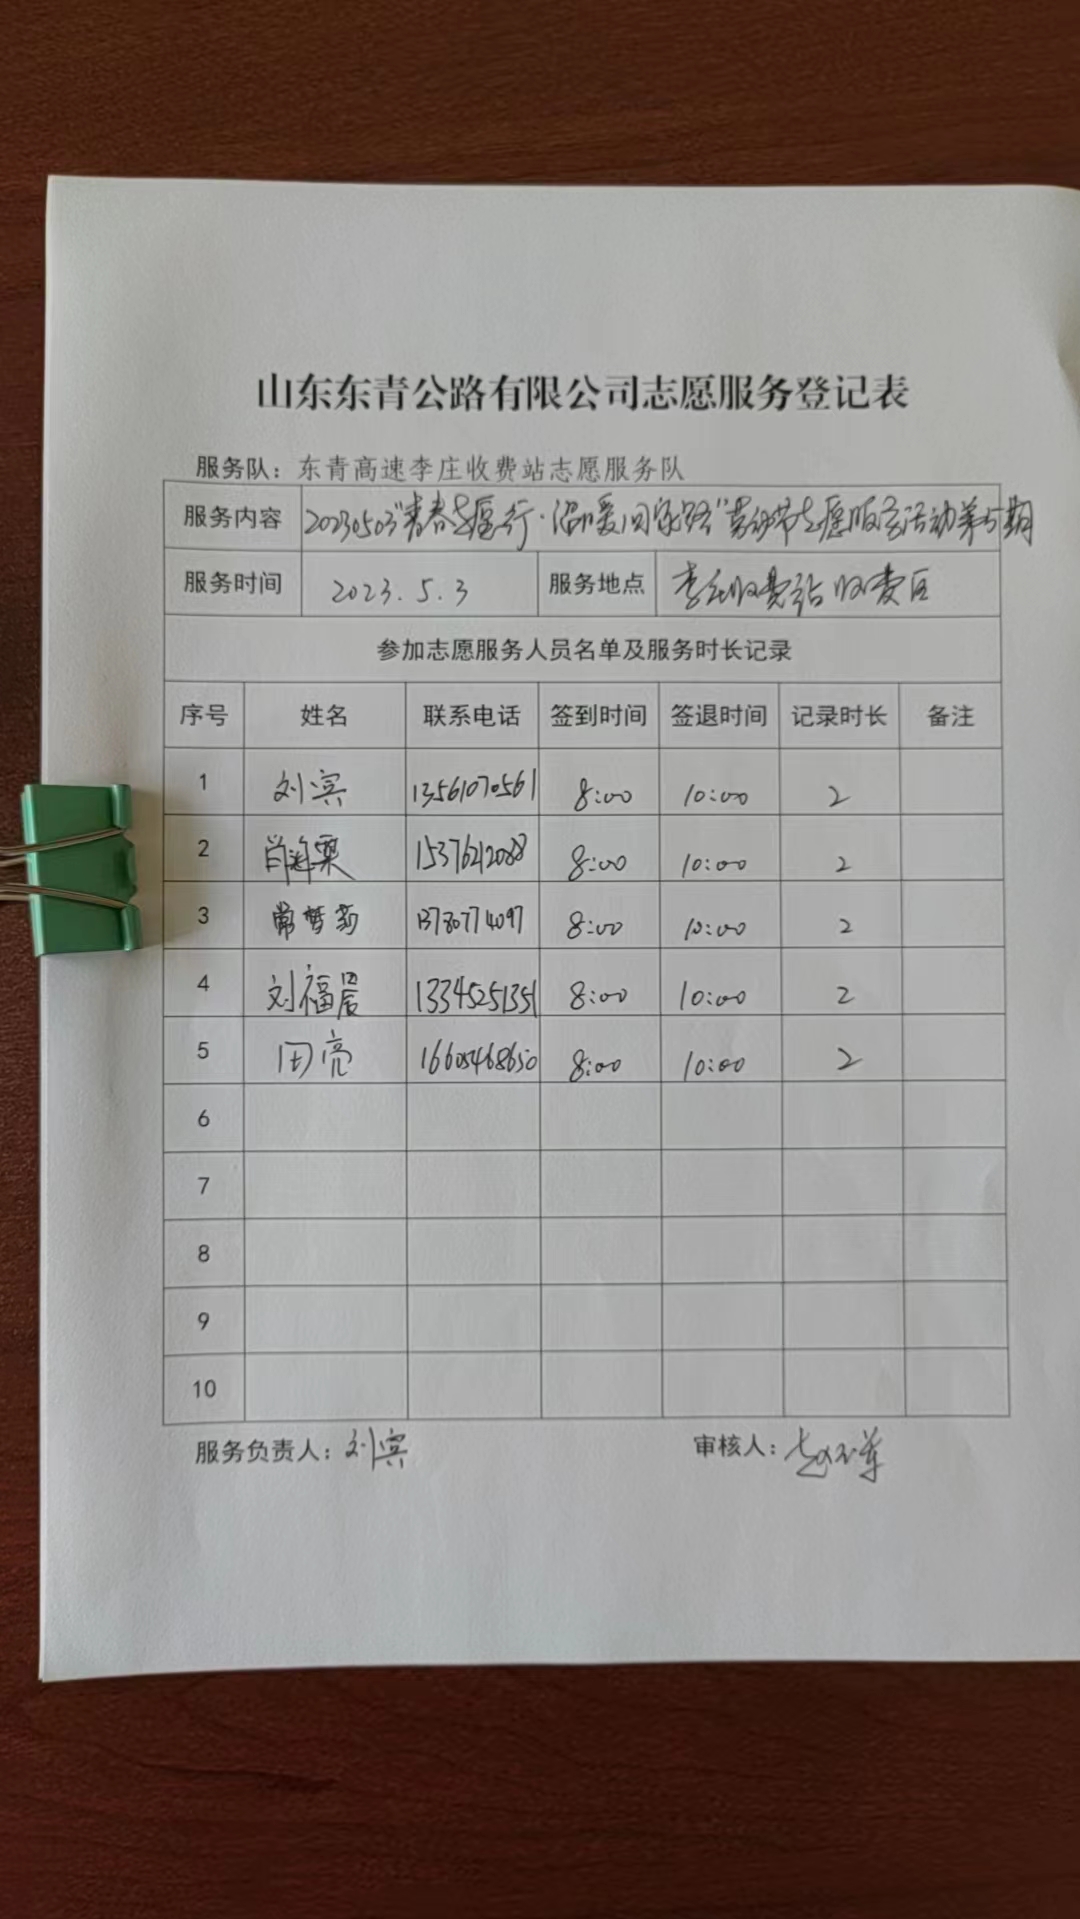 山东东青公路有限公司志愿服务登记表
服务队：东青高速李庄收费站志愿服务队
服务内容 20230503"青春志愿行·温暖回家路"劳动节志愿服务活动第五期
服务时间 2023.5.3 服务地点 李庄收费站收费区
参加志愿服务人员名单及服务时长记录
序号 姓名 联系电话 签到时间 签退时间 记录时长 备注
1 刘宾 13561070561 8:00 10:00 2
2 15376212088 8:00 10:00 2
3 常梦莎 13780774097 8:00 10:00 2
4 刘福晨 13345251351 8:00 10:00 2
5 田亮 16605468650 8:00 10:00 2
6
7
8
9
10
服务负责人：刘宾 审核人：